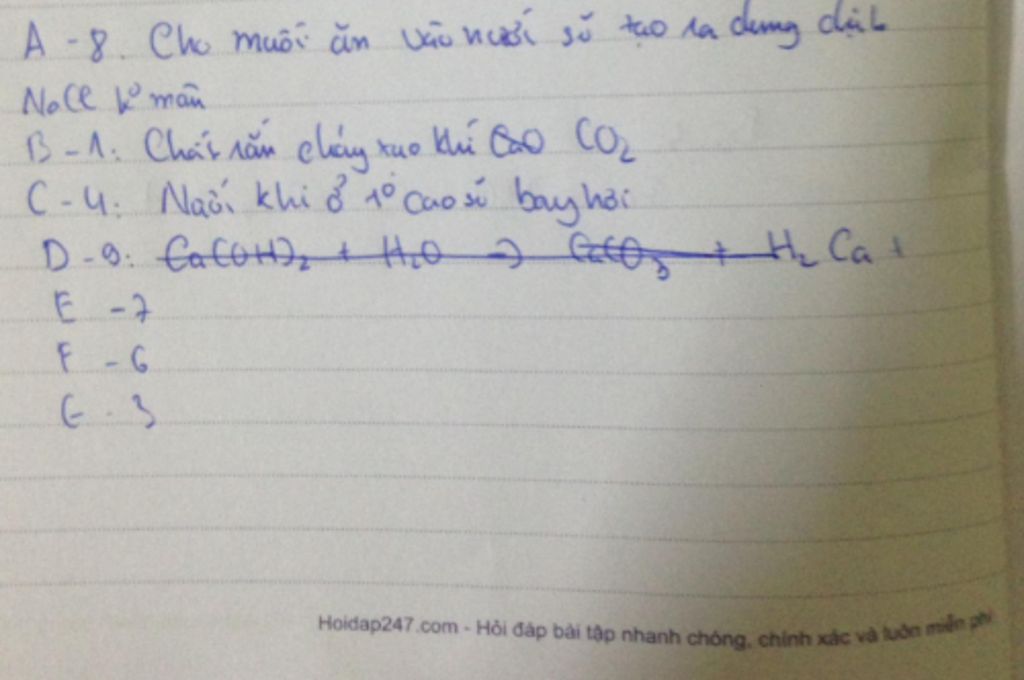 A - 8. Cho muối ăn vào nước sẽ tạo ra dung dịch
NaCl k° màu
B - 1: Chất rắn cháy tạo khí CO2
C - 4: Nước khi ở t° cao sẽ bay hơi
D - 9: Ca(OH)2 + H2O → CaCO3 + H2 Ca +
E - 7
F - 6
G - 3
Hoidap247.com - Hỏi đáp bài tập nhanh chóng, chính xác và luôn miễn phí